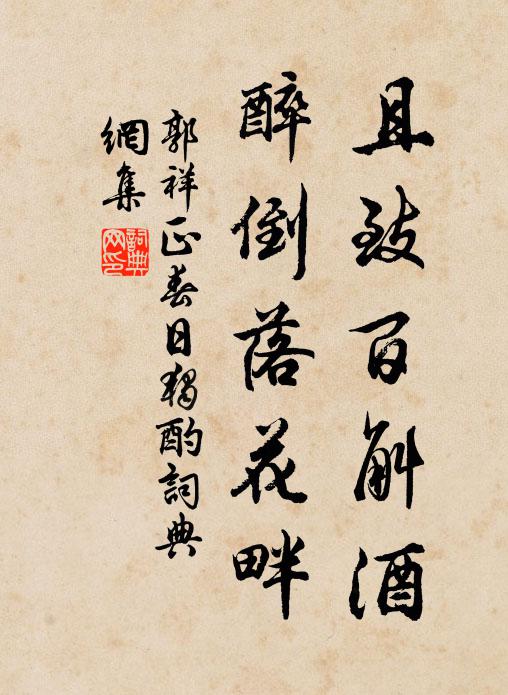 且致百斛酒
醉倒落花畔
郭祥正春日獨酌詞典
網集
詞典
网印